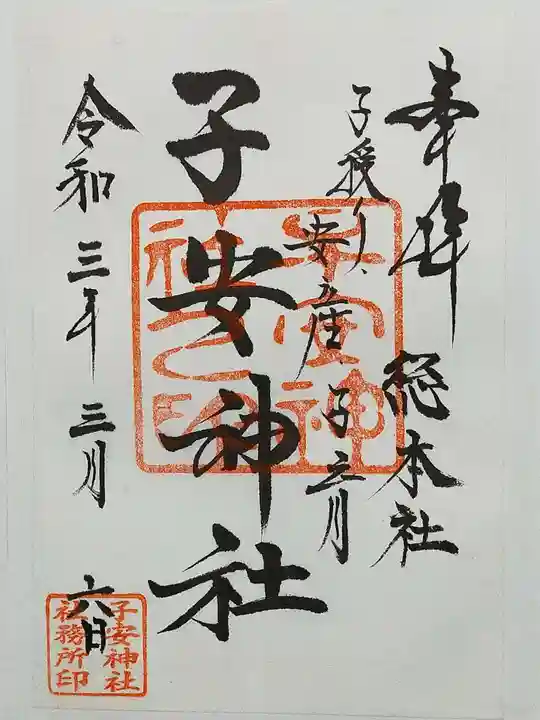 奉拝
総本社
子授け、安産、子育
子安神社
令和三年三月六日
子安神社
社務所印